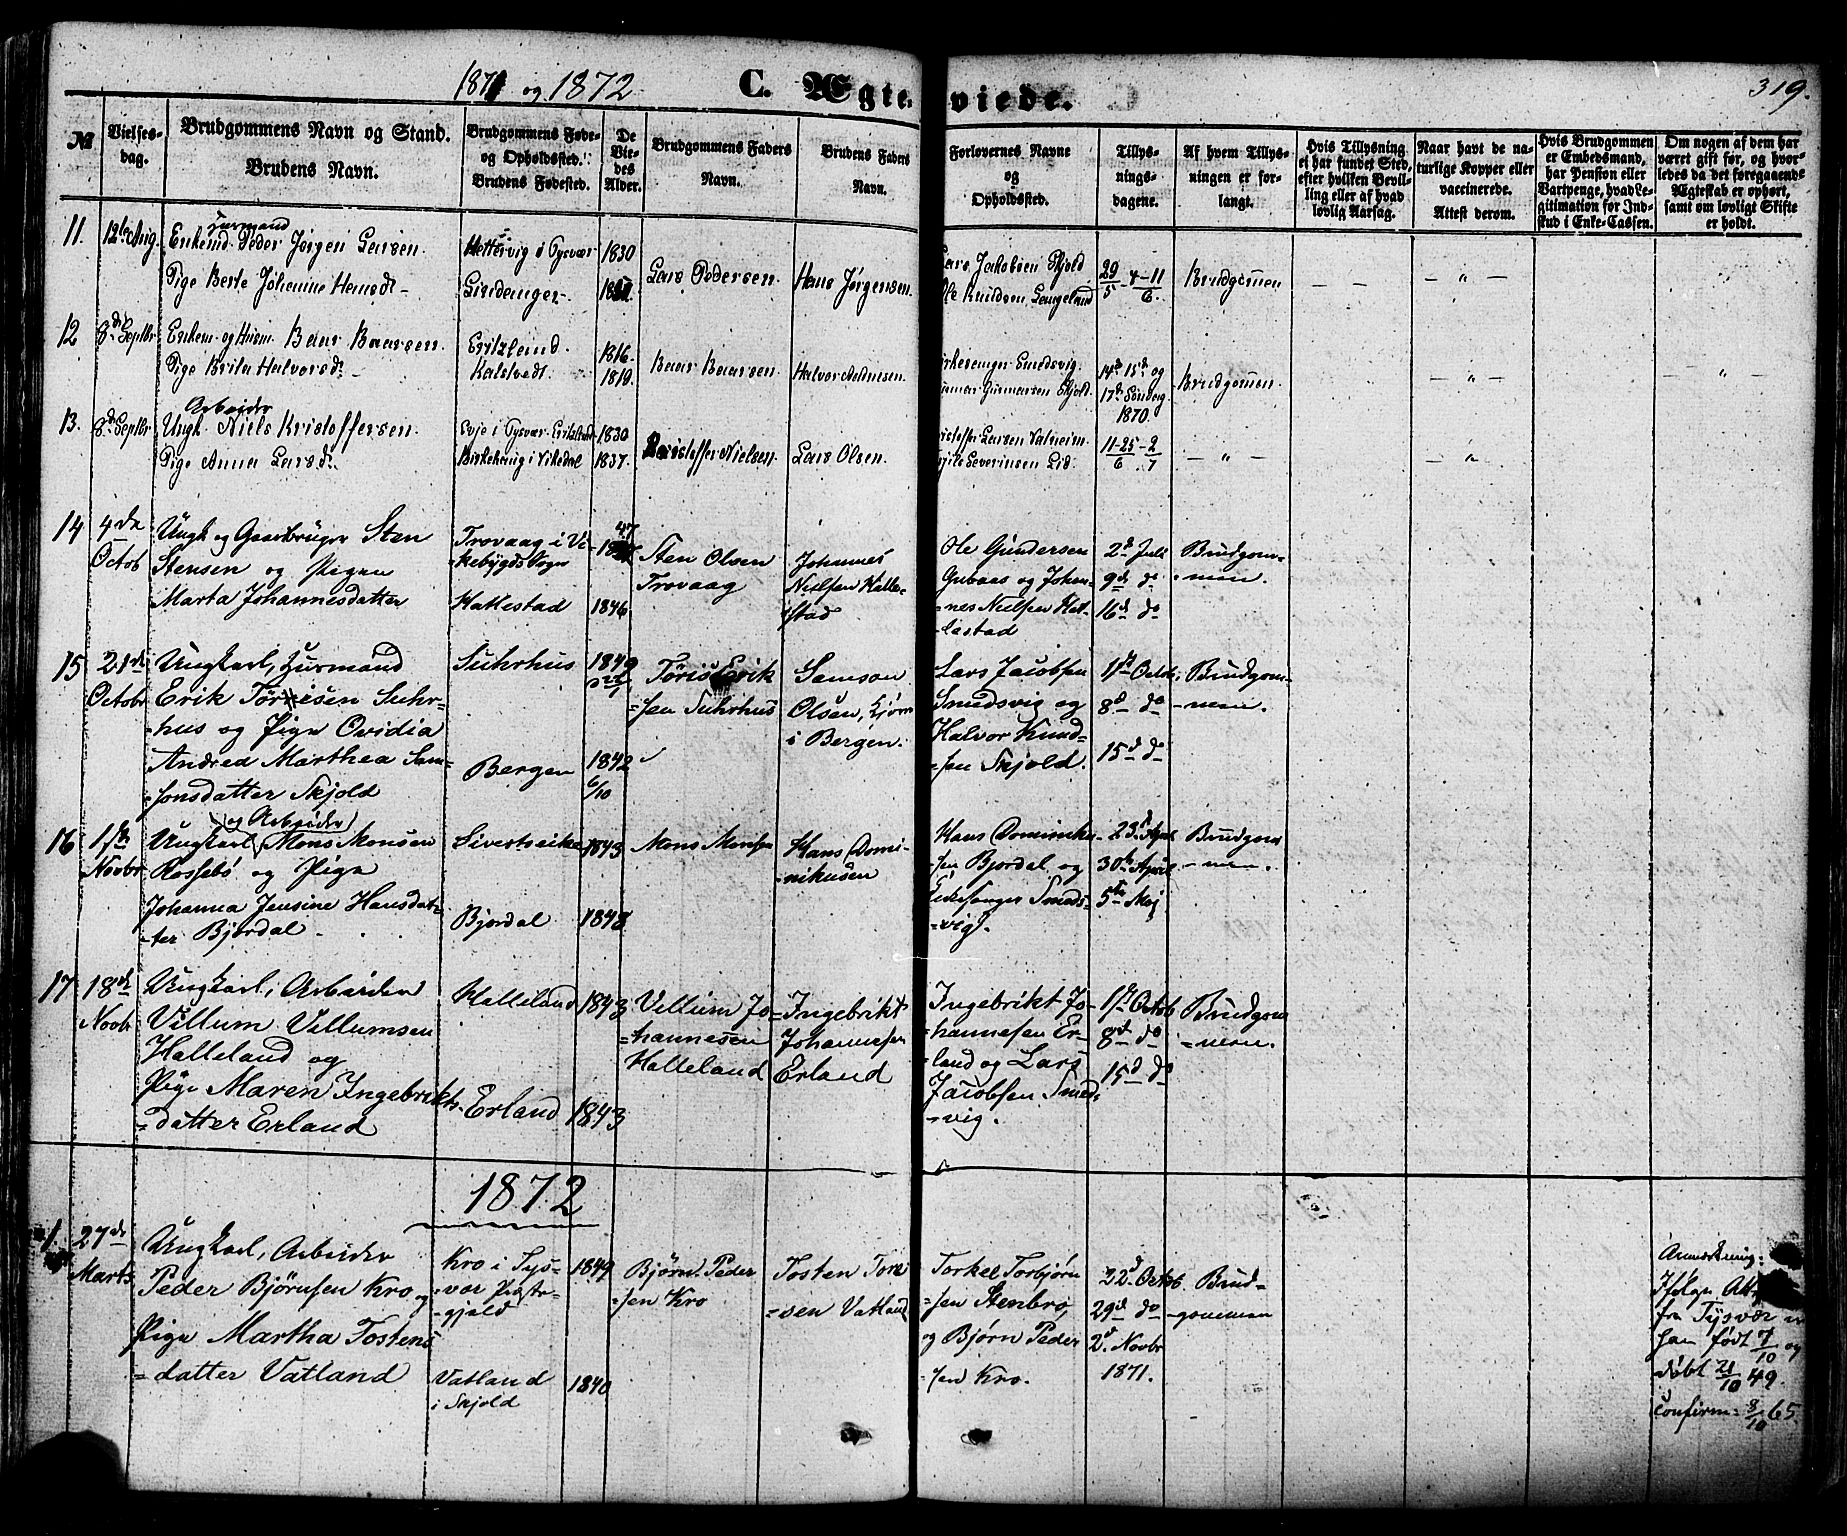 1871 og 1872
C. Ægteviede.
319.
№
Vielsesdag.
Brudgommens Navn og Stand.
Brudens Navn.
Brudgommens Føde-
og Opholdssted.
Brudens Fødested.
De
Vie-
des
Alder.
Brudgommens Faders
Navn.
Brudens Faders
Navn.
Forlovernes Navne
og
Opholdssted.
Tillys-
nings-
dagene.
Af hvem Tillys-
ningen er for-
langt.
Hvis Tillysning
ei har fundet Sted,
efter hvilken Bevil-
ling eller af hvad
lovlig Aarsag.
Naar havt de na-
turlige Kopper eller
vaccinerede.
Attest derom.
Hvis Brudgommen
er Embedsmand,
har Pension eller
Vartpenge, hvad Le-
gitimation for Ind-
skud i Enke-Cassen.
Om nogen af dem har
været gift før, og hvor-
ledes da det foregaaende
Ægteskab er ophørt,
samt om lovligt Skifte
er holdt.
11. 12te Aug.
Enkemd Peder Jørgen Larsen
Pige Berte Johanne Hansdr
Hettervig i Tysvær 1830
Lindanger
Lars Pedersen
Hans Jørgensen
Lars Jakobsen Skjold
Ole Knudsen Langeland
29/5 - 4 - 11/6.
Brudgomen
12 8de Septbr
Enkem. og Husm. Baar Baarsen.
Pige Brita Halvorsdr
1816.
1819.
Baar Baarsen
Birkesanger Smedsvig.
Gunnar Gunnarsen Skjold
14de 15de og
17de Søndag
1870.
Brudgomen
13. 8de Septbr
Arbeider
Ungk. Niels Kristoffersen.
Pige Anna Larsdr.
1830
Birkehaug i Vikedal 1837.
Kristoffer Nielsen
Lars Olsen.
Kristoffer Larsen Valheim
Severinsen Lid.
11-25/6 - 2/7
14 4de Octob
Ungk og Gaardbruger Sten
Stensen og Pigen
Marta Johannesdatter
Trovaag i Vi-
kebygds Sogn
Hallestad 1846
Sten Olsen
Trovaag
Johannes
Nielsen Halle-
stad
Ole Gundersen
Gubaas og Johan-
nes Nielsen Hal-
lestad
2de Juli
9de do
16de do
Brudgom-
men.
15 21de Octobr
Ungkarl, Huusmand
Erik Tørrisen Suhr-
hus og Pige Ovidia
Andrea Marthea Sam-
sonsdatter Skjold
Suhrhus 1849
Bergen 1842
6/10
Tøris Erik
sen Suhrhus
Samson
Olsen,
i Bergen.
Lars Jacobsen
Smedsvig og
Halvor Knud-
sen Skjold.
1ste Octob,
8de do
15de do
Brudgom-
men.
16 1ste Novbr
og Arbeider
Ungkarl Mons Monsen
Rossebö og Pige
Johanna Jensine Hansdat-
ter Bjordal
Sivertseike 1843
Bjordal 1848
Mons Monsen
Hans Domi-
nikusen
Hans Dominiku
sen Bjordal og
Smeds-
vig.
23de April
30te April
5te Mai
Brudgom
men.
17 18de Novbr
Ungkarl, Arbeider
Villum Villumsen
Halleland og
Pige Maren Ingebrikts-
datter Erland
Halleland 1843
Erland 1843
Villum Jo-
hannesen
Halleland
Ingebrikt
Johannesen
Erland
Ingebrikt Jo-
hannesen Er-
land og Lars
Jacobsen Smed-
vig.
1ste Octob
8de do
15de do
Brudgom
men.
1872
1. 27de Marts
Ungkarl, Arbeider
Peder Bjørnsen Kro og
Pige Martha Tostens
datter Vatland
Kro i Tys-
vær Præste-
gjeld 1849
Vatland
i Skjold 1840
Bjørn Peder
sen Kro
Tosten Tore
sen Vatland
Torkel Torbjørn
sen Stenbro
og Bjørn Peder
sen Kro.
22de Octob.
29de do
2de Novbr
1871.
Brud-
gommen
Anmærkning:
Ifølge
fra Tysvær er
han født 7/10 og
døbt 21/10 49.
confirm: 8/10 65.